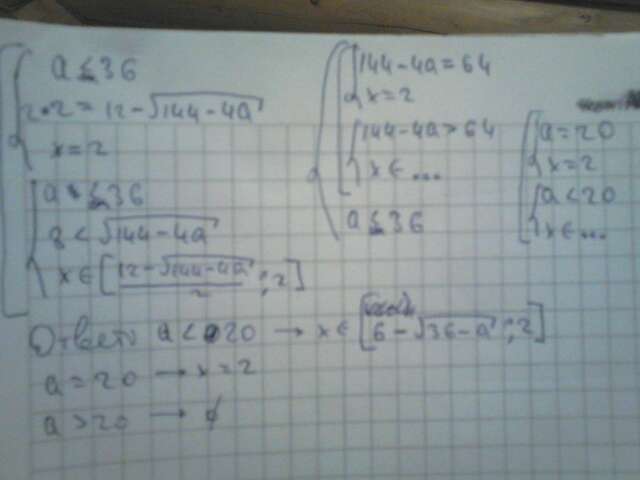 a ≤ 36
2·2 = 12 - √(144 - 4a)
x = 2
a ≤ 36
8 < √(144 - 4a)
x ∈ [(12 - √(144 - 4a))/2 ; 2]
144 - 4a = 64
x = 2
144 - 4a > 64
x ∈ ...
a ≤ 36
a = 20
x = 2
a < 20
x ∈ ...
Ответ: a < 20 → x ∈ [6 - √(36 - a) ; 2]
a = 20 → x = 2
a > 20 → ∅